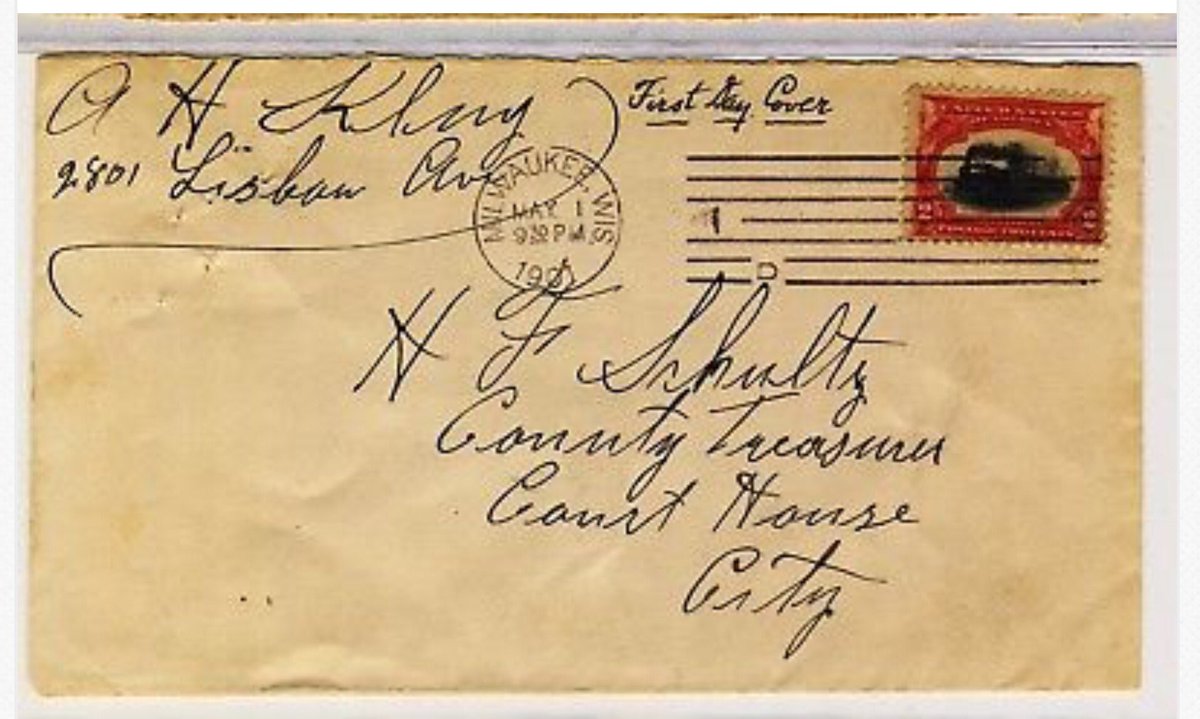 A H Klug
First Day Cover
2801 Lisbon Av
MILWAUKEE, WIS
MAY 1
9 PM
1901
1
D
2 2
H F Schultz
County Treasurer
Court House
City